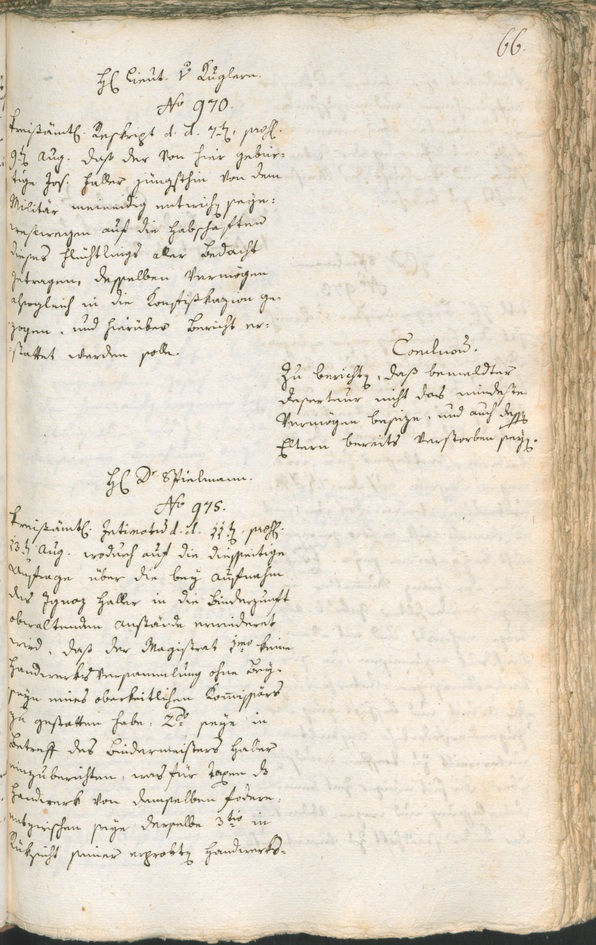 66.
H Lieut. v Kuglern.
No 970.
Kreißämtl. Reskript d. d. 7t, præs.
9t Aug. daß der von hier gebür-
tige Jos: Haller jüngsthin von dem
Militär meineidig entwichen seye:
weswegen auf die Habschaften
dieses Flüchtlings aller Bedacht
getragen, desselben Vermögen
sogleich in die Konfißkazion ge-
zogen, und hierüber Bericht er-
stattet werden solle.
Conclusum.
Zu berichten, daß bemeldter
Deserteur nicht das mindeste
Vermögen besize, und auch dessen
Eltern bereits verstorben seyn.
H Dr Spielmann.
No 975.
Kreißämtl. Intimatum d. d. 11t præs.
13t Aug. wodurch auf die diesseitige
Anfrage über die bey Aufnahm
des Ignaz Haller in die Binderzunft
obwaltenden Anstände erwiedert
wird, daß der Magistrat 1mo keine
Handwerksversammlung ohne Bey-
seyn eines obrigkeitlichen Kommissärs
zu gestatten habe, 2do seye in
Betreff des Bindermeisters Haller
einzuberichten, was für Taxen das
Handwerk von demselben fodere,
entzwischen seye derselbe 3tio in
Rüksicht seiner erprobten Handwerks-